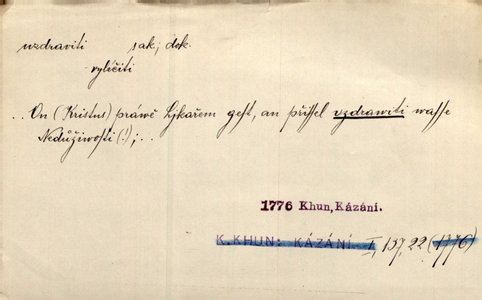 uzdraviti sak, dok.
vyléčiti
.. On (Kristus) práwě Lýkařem gest, an přissel vzdrawiti wasse
Nedůžiwosti (!); ..
1776 Khun, Kázání.
K. KHUN: KÁZÁNÍ I, 137, 22 (1776)